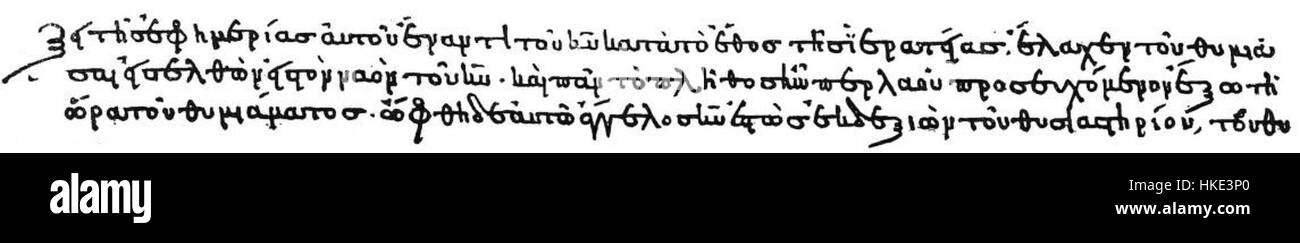 ξει τῆς ἐφημερίας αὐτοῦ ἔναντι τοῦ κ̅υ̅ κατὰ τὸ ἔθος τῆς ἱερατείας. ἔλαχεν τοῦ θυμιᾶ
σαι εἰσελθὼν εἰς τὸν ναὸν τοῦ κ̅υ̅. καὶ πᾶν τὸ πλῆθος ἦν λαοῦ προσευχόμενον ἔξω τῇ
ὥρα τοῦ θυμιάματος. ὤφθη δὲ αὐτῶ ἄγγελος κ̅υ̅ ἑστὼς ἐκ δεξιῶν τοῦ θυσιαστηρίου, τοῦ θυ
alamy
Image ID: HKE3P0
www.alamy.com